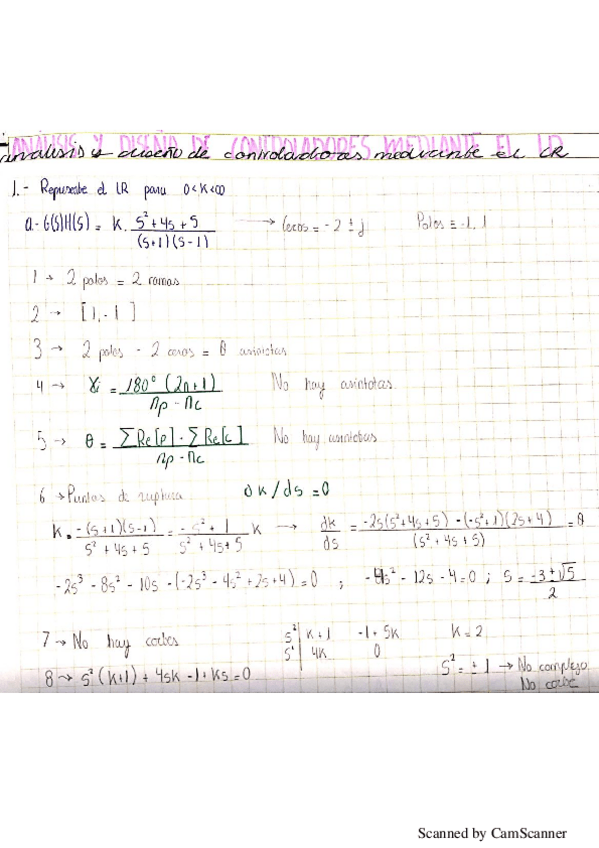 ANÁLISIS Y DISEÑO DE CONTROLADORES MEDIANTE EL LR
análisis y diseño de controladores mediante el LR
1.- Represente el LR para 0<K<∞
a- G(S)H(S) = K. (s²+4s+5)/((s+1)(s-1)) → Ceros = -2 ± j Polos = -1, 1
1 → 2 polos = 2 ramas
2 → [1, -1]
3 → 2 polos - 2 ceros = 0 asintotas
4 → γi = 180º (2n+1)/(np - nc) No hay asintotas.
5 → θ = (∑Re[p] - ∑Re[c])/(np - nc) No hay asintotas
6 → Puntos de ruptura dk/ds = 0
K = -(s+1)(s-1)/(s²+4s+5) = (-s²+1)/(s²+4s+5) K → dk/ds = (-2s(s²+4s+5) - (-s²+1)(2s+4))/(s²+4s+5) = 0
-2s³ - 8s² - 10s - (-2s³ - 4s² + 2s + 4) = 0 ; -4s² - 12s - 4 = 0 ; s = (-3 ± √5)/2
7 → No hay cortes s² | k+1 -1+5k K = 2
s¹ | 4k 0
8 → s²(k+1) + 4sk - 1 + ks = 0 s² = ± 1 → No complejo
No corte
Scanned by CamScanner